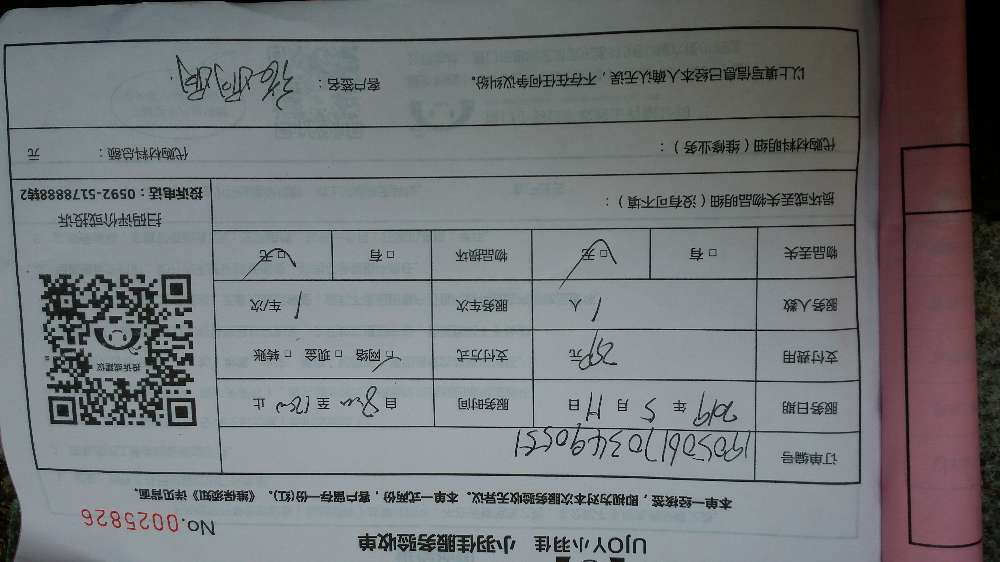 UJOY小羽佳 小羽佳服务验收单
No.0025826
本单一经接签,即视为对本次服务验收无异议。本单一式两份,客户留存一份(红)。《维保须知》详见背面。
订单编号 190506170349055 1
服务日期 2019 年 5 月 11 日 服务时间 自 8:00 至 12:00 止
支付费用 元 支付方式 □ 网络 □ 现金 □ 转账
服务人数 1 人 服务车次 1 车/次
物品丢失 □ 有 □ 无 物品损坏 □ 有 □ 无
投诉或建议
扫码评价或投诉
投诉电话:0592-5178888转2
损坏或丢失物品明细(没有可不填):
代购材料明细(维修业务): 代购材料总额: 元
以上填写信息已经本人确认无误,不存在任何争议纠纷。 客户签名: